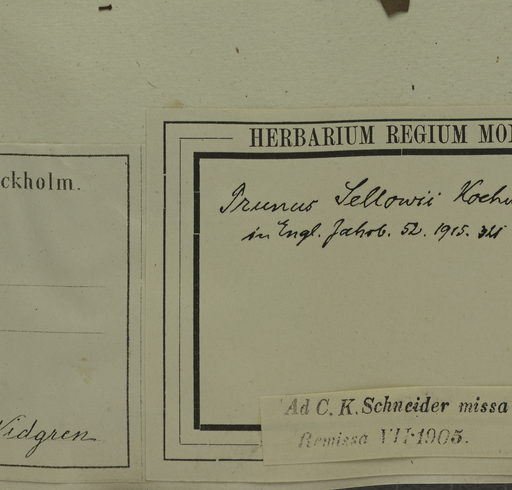 ckholm.
Widgren
HERBARIUM REGIUM MO
Prunus Sellowii Koehn
in Engl. Jahrb. 52. 1915. 321
Ad C. K. Schneider missa
Remissa VII·1905.